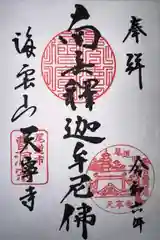 奉拝
令和六年
南無釋迦牟尼佛
海雲山天寧寺
尾道
天寧寺